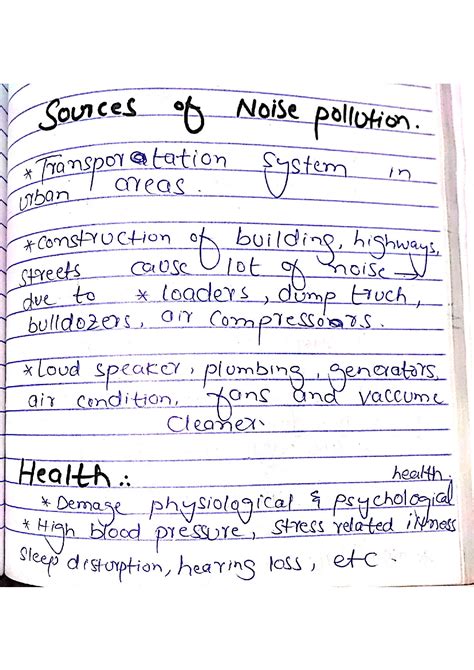 Sources of Noise pollution.
* Transportation system in
urban areas.
* construction of building, highways,
streets cause lot of noise →
due to * loaders, dump truch,
bulldozers, air compressors.
* Loud speaker, plumbing, generators,
air condition, fans and vaccume
Cleaner.
Health ∴
health.
* Demage physiological & psychological
* High blood pressure, stress related illness
sleep distorption, hearing loss, etc.